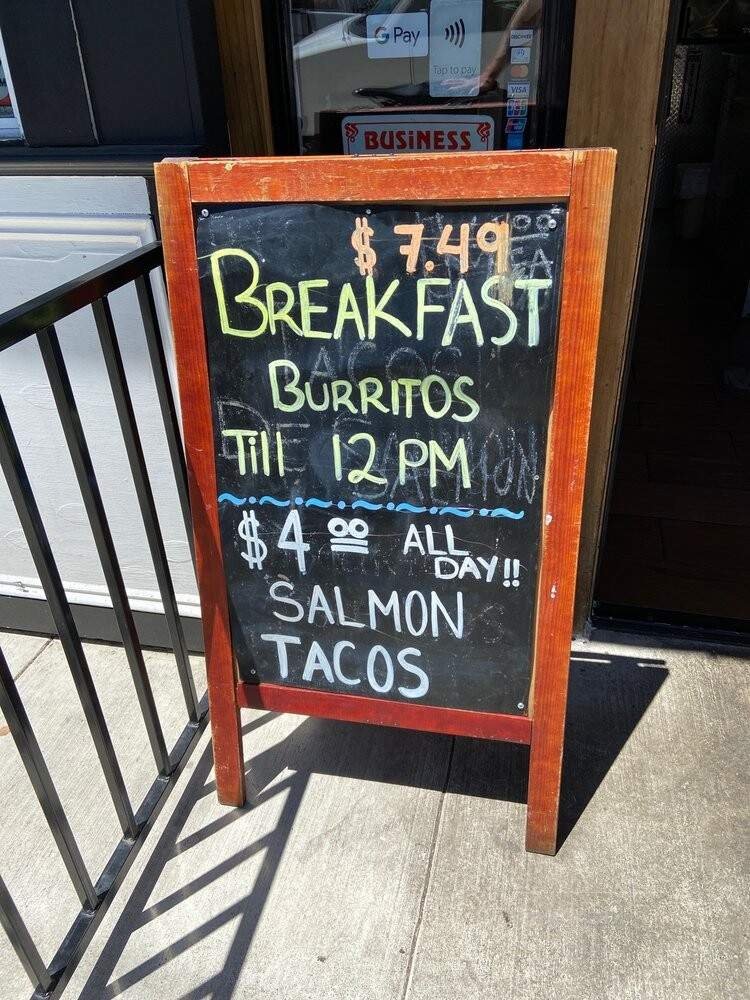 G Pay
Tap to pay
DISCOVER
VISA
BUSiNESS
$7.49
BREAKFAST
BURRITOS
Till 12 PM
$4 00 ALL
DAY!!
SALMON
TACOS